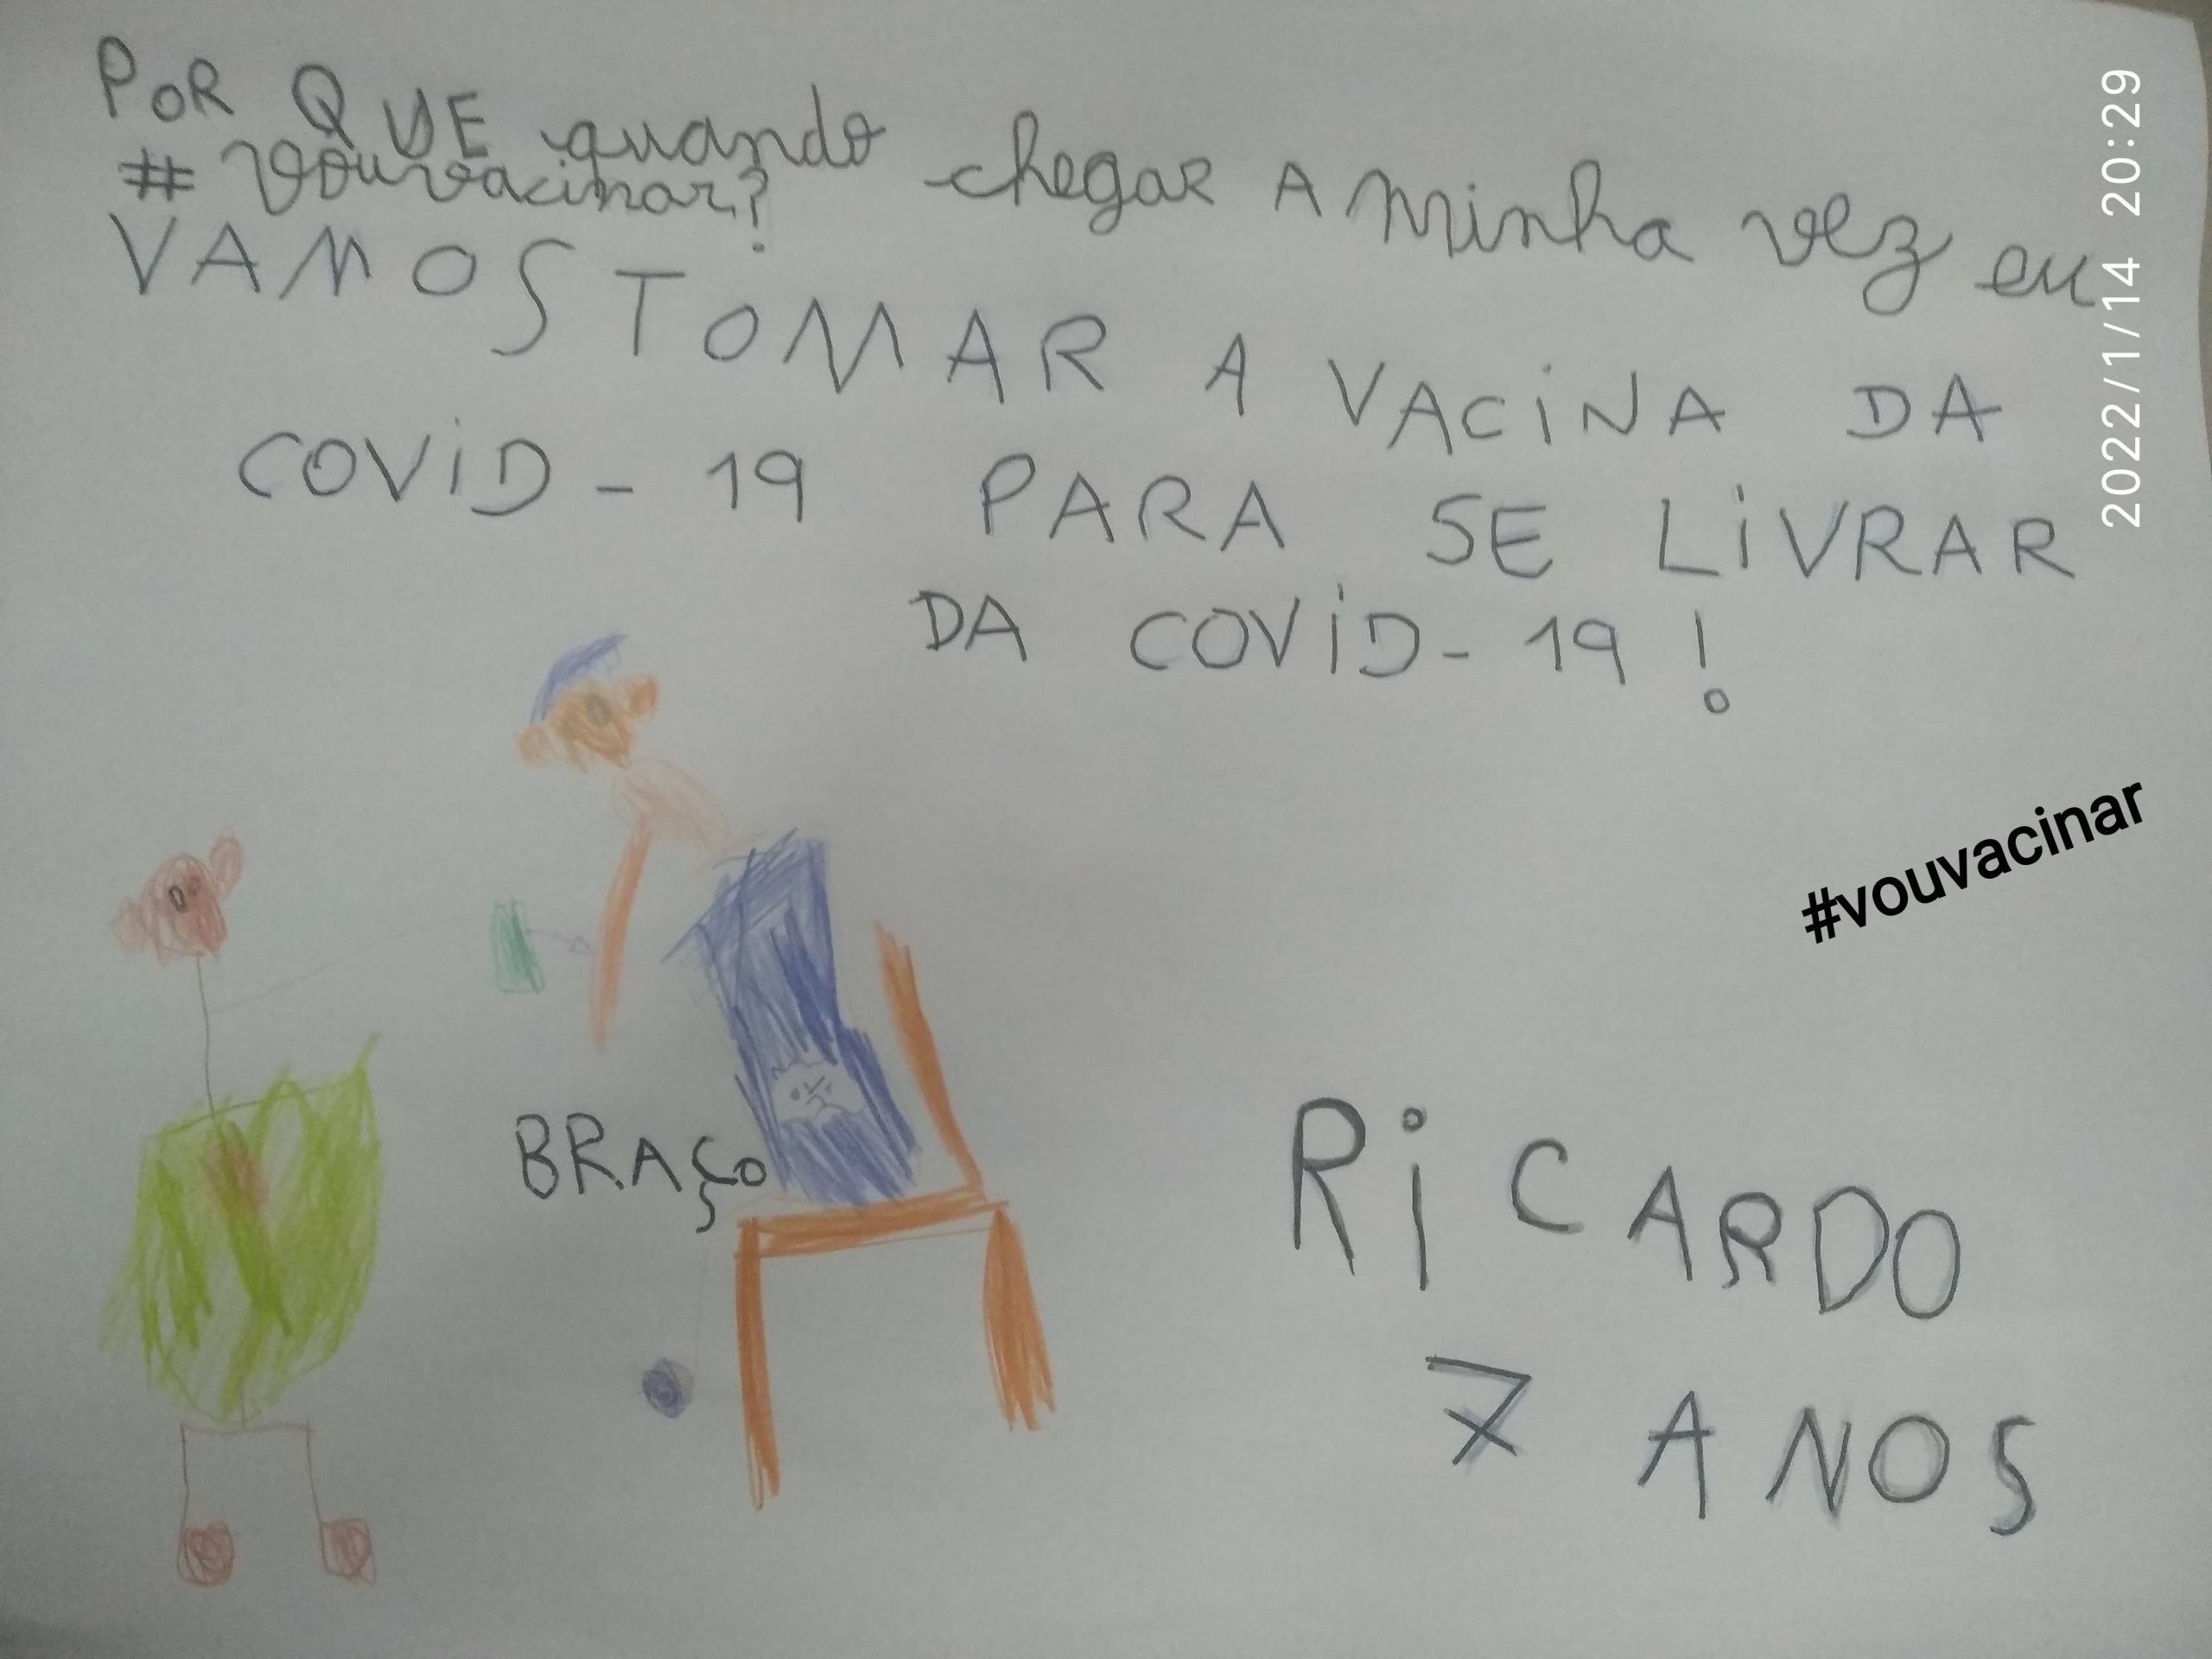 POR QUE quando chegar A minha vez eu
# vouvacinar?
VAMOS TOMAR A VACINA DA
COVID - 19 PARA SE LIVRAR
DA COVID - 19 !
2022/1/14 20:29
#vouvacinar
BRAÇO
RICARDO
7 ANOS